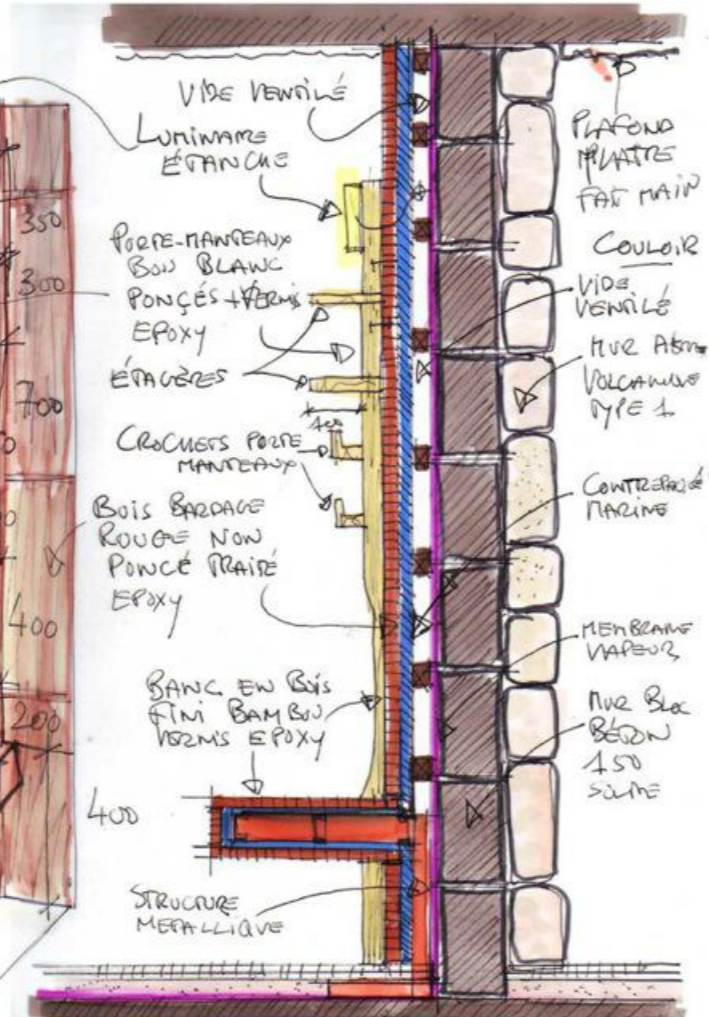 VIDE VENTILÉ
LUMINAIRE
ÉTANCHE
PORTE-MANTEAUX
BOIS BLANC
PONÇÉS + VERNIS
EPOXY
ÉTAGÈRES
CROCHETS PORTE
MANTEAUX
BOIS BARDAGE
ROUGE NON
PONCÉ TRAITÉ
EPOXY
BANC EN BOIS
FINI BAMBOU
VERNIS EPOXY
400
STRUCTURE
METALLIQUE
350
300
700
400
200
PLAFOND
PLATRE
FAIT MAIN
COULOIR
VIDE
VENTILÉ
MUR
VOLCANIQUE
TYPE 1
CONTREPLAQUÉ
MARINE
MEMBRANE
VAPEUR
MUR BLOC
BÉTON
150